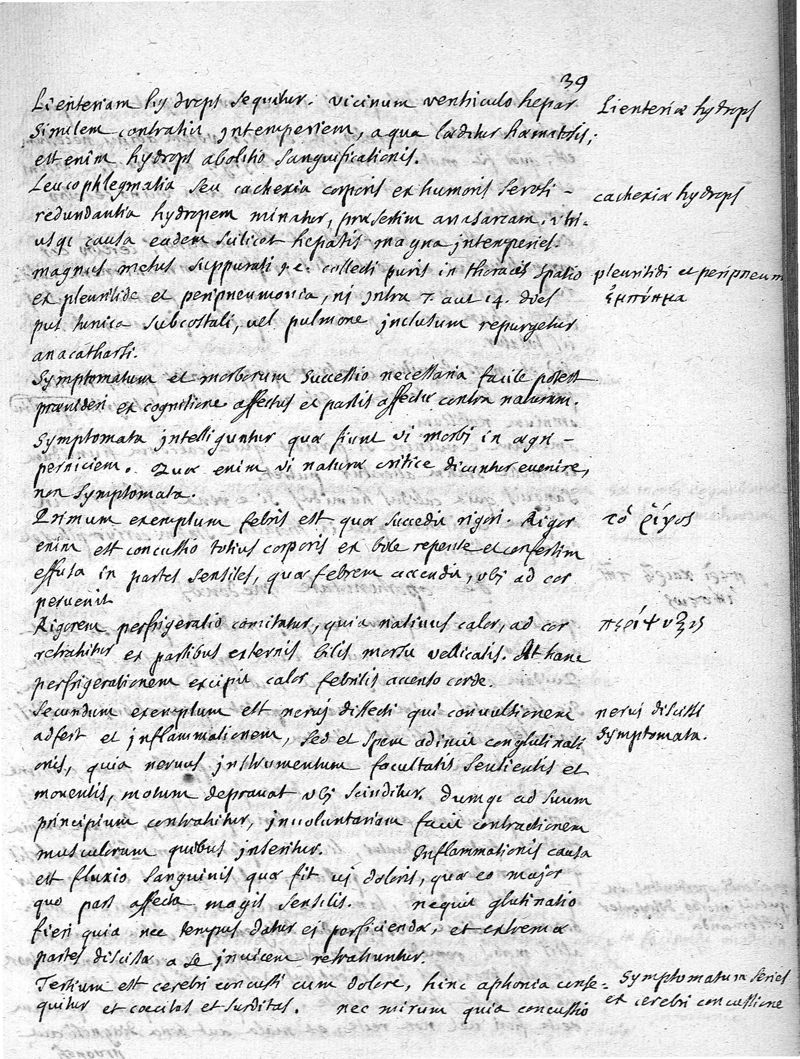 39
Lienteriam hydrops sequitur. vicinum ventriculo hepar
Similem contrahit intemperiem, a qua laeditur haematosis;
est enim hydrops abolitio sanguificationis.
Lienteriae hydrops
Leucophlegmatia seu cachexia corporis ex humoris serosi
redundantia hydropem minatur, praesertim anasarcam, utri-
usq; causa eadem scilicet hepatis magna intemperies.
cachexiae hydrops
magnus metus suppurati i.e. collecti puris in thoracis spatio
ex pleuritide et peripneumonia, nj intra 7. aut 14. dies
pus tunica subcostali, vel pulmone inclusum repurgetur
anacatharsi.
pleuritidi et peripneum
ἐμπύημα
Symptomatum et morborum successio necessaria facile potest
praevideri ex cognitione affectus et partis affectae contra naturam.
Symptomata intelliguntur quae fiunt vi morbi in aegri
perniciem. Quae enim vi naturae critice dicuntur evenire,
non symptomata.
Primum exemplum febris est quae succedit rigori. Rigor
enim est concussio totius corporis ex bile repente et confertim
effusa in partes sensiles, quae febrem accendit, ubj ad cor
pervenit
τὸ ῥίγος
Rigorem perfrigeratio comitatur, quia nativus calor, ad cor
retrahitur ex partibus externis bilis morsu vellicatis. At hanc
perfrigerationem excipit calor febrilis accenso corde.
περίψυξις
Secundum exemplum est nervj dissecti qui convulsionem
adfert et inflammationem, sed et spem adimit conglutinati
onis, quia nervus instrumentum facultatis sentientis et
moventis, motum depravat ubj scinditur. dumq; ad suum
principium contrahitur, involuntariam facit contractionem
musculorum quibus inseritur. Inflammationis causa
est fluxio sanguinis quae fit vj doloris, quae eo major
quo pars affecta magis sensilis. nequit glutinatio
fieri quia nec tempus datur ej perficiendae, et extrema
partes discissae a se invicem retrahuntur.
nervj discissi
symptomata.
Tertium est cerebri concussi cum dolore, hinc aphonia conse-
quitur et caecitas et surditas. nec mirum quia concussio
Symptomatum series
ex cerebri concussione